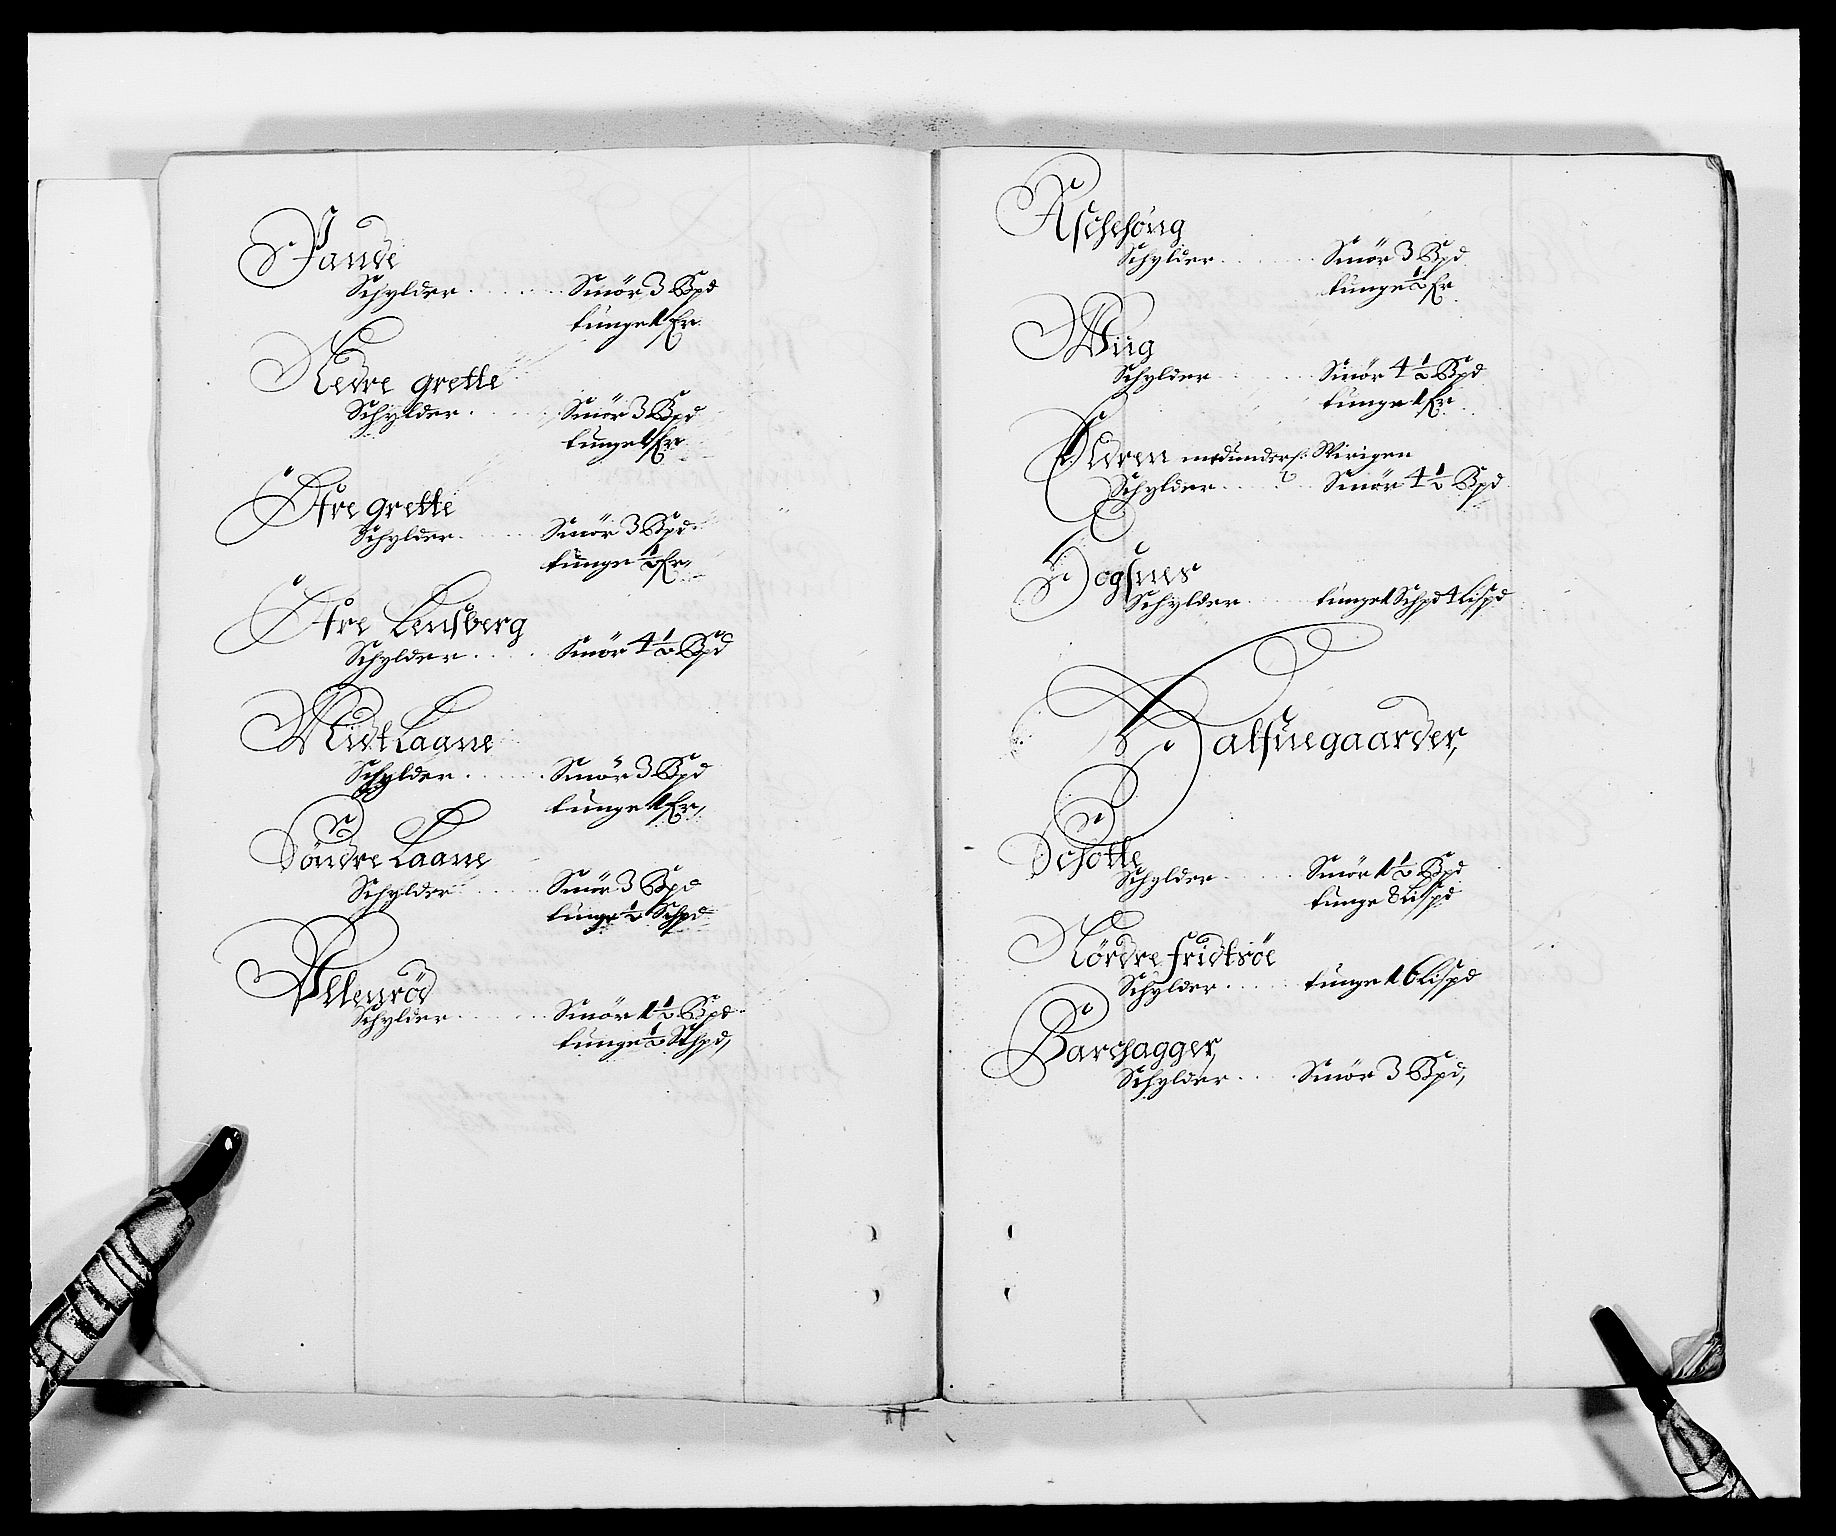 Jande
Schylder . . . . . Smör 3 Bpd
tunge 1 Er
Nedre grette
Schylder . . . . . Smör 3 Bpd
tunge 1 Er
Öfre grette
Schylder . . . . . Smör 3 Bpd
tunge ½ Er,
Öfre Lensberg
Schylder . . . . . Smör 4 ½ Bpd
Midt Laane
Schylder . . . . . Smör 3 Bpd
tunge 1 Er,
Söndre Laane
Schylder . . . . . Smör 3 Bpd
tunge ½ Schpd
Allenröd
Schylder . . . . . Smör 1 ½ Bpd
tunge ½ Schpd,
Aschehoug
Schylder . . . . . Smör 3 Bpd
tunge ½ Er
Wiig
Schylder . . . . . Smör 4 ½ Bpd
tunge 1 Er
Eldren med underl:
Schylder . . . . . Smör 4 ½ Bpd
Hogsnes
Schylder . . . . . tunge 1 Schpd 4 Lispd
Halfuegaarder,
Schotte
Schylder . . . . . Smör 1 ½ Bpd
tunge 8 Lispd
Nördre fridtsöe
Schylder . . . . . tunge 16 Lispd
Barchagger,
Schylder . . . . . Smör 3 Bpd,